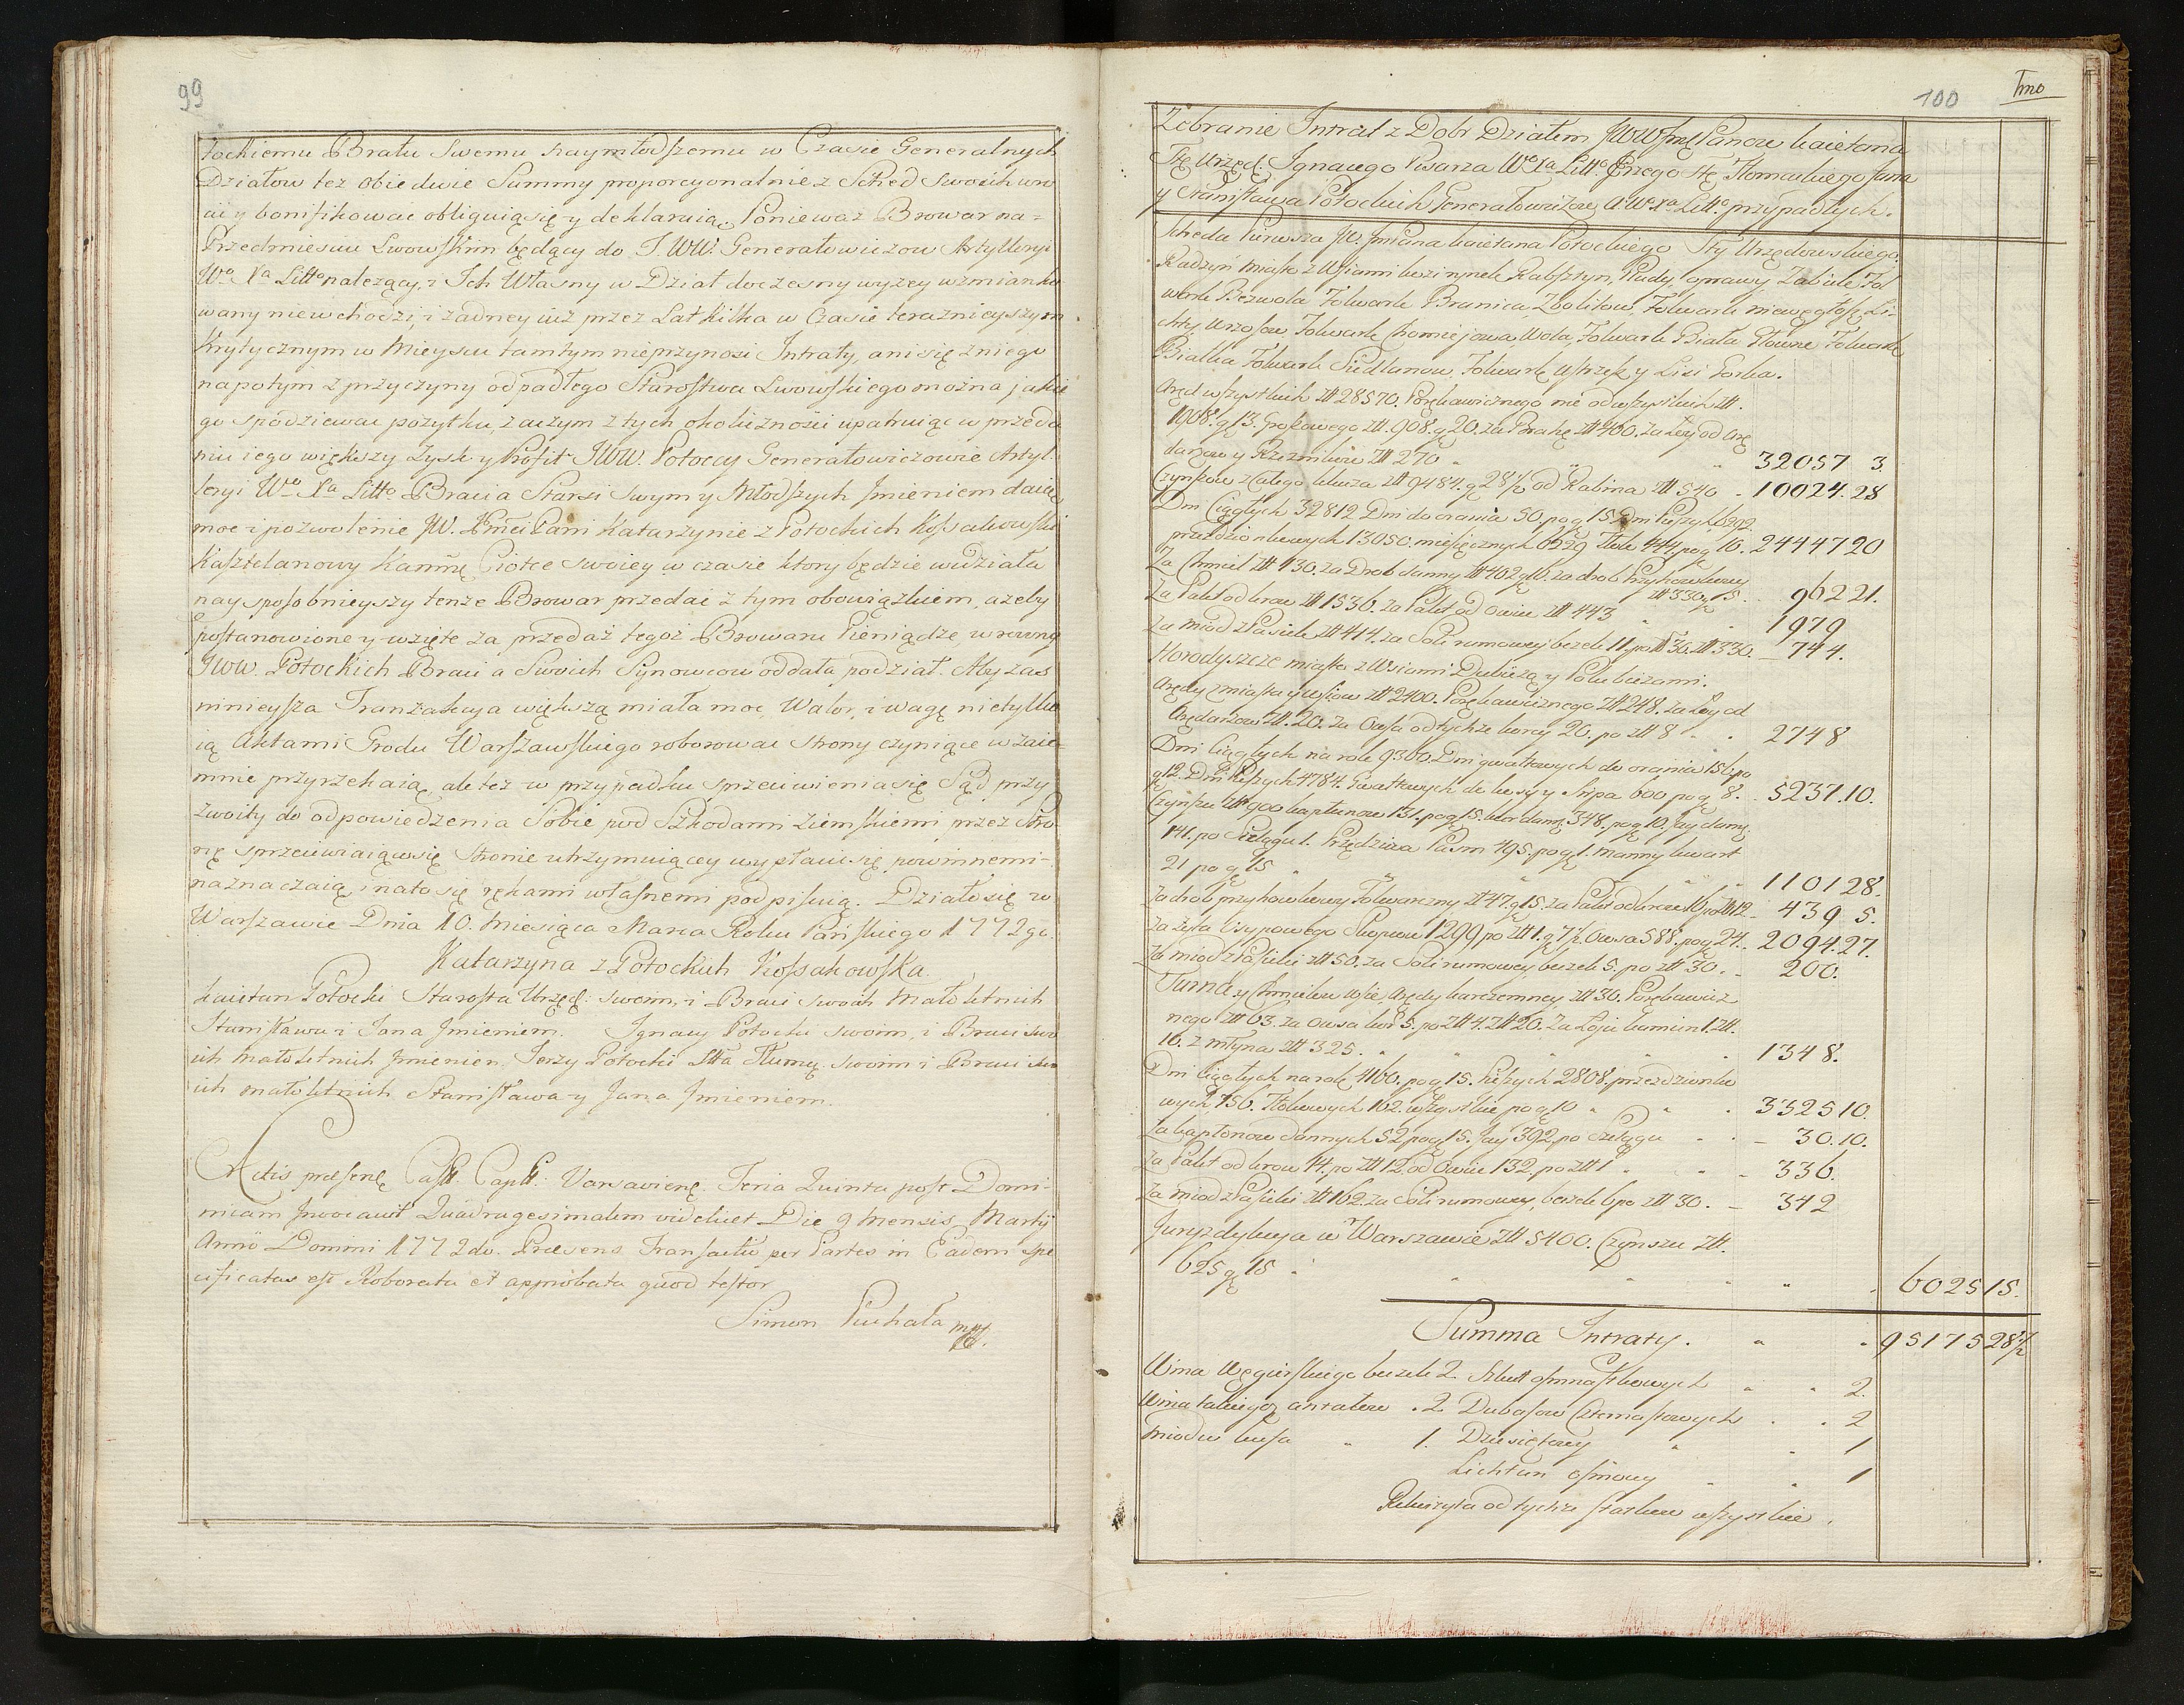 99
tockiemu Bratu Swemu naymłodszemu w Czasie Generalnych
Działow też obie dwie Summy proporcyonalnie z Sched Swoich wró
cić y bonifikować obliguią się y deklaruią. Ponieważ Browar na=
Przedmieściu Lwowskim będący do J.WW. Generałowiczow Artylleryi
Wo Xa Litto należący, i Jch Własny w Dział doczesny wyżey wzmianko
wany niewchodzi, i żadney iuż przez Lat kilka w Czasie teraznieyszym
krytycznym w Mieyscu tamtym nieprzynosi Jntraty, ani się zniego
napotym z przyczyny odpadłego Starostwa Lwowskiego można jakie
go spodziewać pożytku, zaczym z tych okoliczności upatruiąc w przeda
niu iego większy Zysk y Profit JWW. Potoccy Generałowiczowie Artyl-
leryi Wo Xa Litto Bracia Starsi swym y Młodszych Jmieniem daią
moc i pozwolenie JW. Jmci Pani Katarzynie z Potockich Kossakowski
Kasztelanowy Kamin: Ciotce swoiey w czasie ktory będzie widziała
nay sposobnieyszy tenże Browar przedać z tym obowiązkiem, ażeby
postanowione y wzięte za przedaż tegoż Browaru Pieniądze, w rowny
JWW. Potockich Braci a Swoich Synowcow oddała podział. Aby zaś
ninieysza Tranzakcya większą miała moc, Walor, i wagę nietylko
ią Aktami Grodu Warszawskiego roborować strony czyniące wzaie-
mnie przyrzekaią, ale też w przypadku sprzeciwienia się Sąd przy
zwoity do odpowiedzenia Sobie pod Szkodami Ziemskiemi przez Stro
nę sprzeciwiaiącąsię Stronie utrzymuiącey wypłacić się powinnemi-
naznaczaią, i nato się rękami własnemi podpisuią. Działo się w
Warszawie Dnia 10. Miesiąca Marca Roku Pańskiego 1772go.
Katarzyna z Potockich Kossakowska.
Kaietan Potocki Starosta Urzęd: Swoim, i Braci swoich Małoletnich
Stanisława i Jana Jmieniem. Jgnacy Potocki swoim, i Braci swo
ich małoletnich Jmieniem. Jerzy Potocki Stta Tłumę. swoim i Braci swo
ich małoletnich Stanisława y Jana Jmieniem.
Actis præsentę Castr. Captl: Varsavienę. Feria Quinta post Domi-
nicam Jnvocavit Quadragesimalem videlicet Die 9 Mensis Martij
Anno Domini 1772do. Præsens Transactio per Partes in Eadem spe
cificatas est Roborata et approbata quod testor
Simon Puchała mpp.
100
1mo
Zebranie Jntrat z Dobr Działem JWW Jmę Panow Kaietana
Stę Urzędę Jgnacego Pisarza Wo Xa Litto Jerzego Stę Tłomackiego Jana
y Stanisława Potockich Generałowiczow A: Wo Xa Litto przypadłych.
Scheda Pierwsza JW. Jmć Pana Kaietana Potockiego Sty Urzędowskiego.
Radzyń Miasto z Wsiami Rabsztyn, Płudy, Zabiele Fol
wark Bezwola Folwark Branica Zbolitow, Folwark niewęgłosz, Li-
chty, Wrzosow, Folwark Chomiejowa, Wola, Folwark Biała Główne Folwark
Bialka Folwark Siedlanow, Folwark Ustrzesz y Lisi Gorka.
Aręd wszystkich Złł 28570. Porękawicznego nie od wszystkich Złł.
1908. gę 13. Grobowego Złł. 908. gę 20. za Brahę Złł 400. za Łoy od Arę
darzow y Rzeznikow Złł 270 32057 3.
Czynszow z całego klucza Złł 9484. gę 28½ od Rabina Złł 540 10024.28
Dni Ciągłych 32812 Dni do orania 50. po gę 15 Dni Pieszych 6292
przędziorkowych 13050. miesięcznych 6529 Tłuk 444. po gę 10. 24447 20
Za Chmiel Złł 130. za Drob danny Złł 402 g 16. za drob Przychowkowy
Złł 330. g 15. 962 21.
Za Pakt od krow Złł 1536. za Pakt od owiec Złł 443 1979
Za miod z Pasiek Złł 414. za Soli rumowey beczek 11 po Złł 30. Złł 330. 744.
Horodyszcze miasto z Wsiami Dubicą y Polubiczami.
Aręd z miasta y wsiow Złł 2400. Porękawicznego Złł 248. za Łoy od
Arędarzow Złł. 20. za Owsa od tychże korcy 20. po Złł 8 2748
Dni Ciągłych na rolę 9360. Dni gwałtowych do orania 156. po
g 12. Dni Pieszych 4784. Gwałtowych do kosy y Sierpa 600 po gę 8. 5237.10.
Czynszu Złł 900 kapłonow 131. po g 15. kur danę 348. po gę 10. Jay danę.
141. po Szelągu 1. Przędziwa Pasm 495. po gę 1. manny kwart
21 po g 15 1101 28.
Za drob przychowkowy Folwarczny Złł 47. g 15. za Pakt od krow po Zł 12. 439 5.
Za żyta Osypowego Sko: 1299 po Złł 1. g 7½. Owsa 588. po g 24. 2094.27.
Za miod z Pasieki Złł 50. za Soli rumowey beczek 5. po Złł 30. 200.
Turna y Chmielew wsie, Aręd karczemney Złł 30. Porękawicz
nego Złł 63. za Owsa kor 5. po Złł 4. Złł 20. Za Łoju kamień 1. Złł.
10. z młyna Złł 325. 1348.
Dni ciągłych na rolę 4160. po g 15. Pieszych 2808. przędziorko
wych 756. Tłokowych 162. wszystkie po g 10 3325 10.
Za kapłonow dannych 52 po g 15. Jay 392. po Szelągu 30.10.
Za Pakt od krow 14. po Złł 12. od Owiec 132. po Złł 1 336.
Za miod z Pasieki Złł 162. za Soli rumowey, beczek 6 po Złł 30. 342
Juryzdykcya w Warszawie Złł 5400. Czynszu Złł.
625 g 15 6025 15.
Summa Jntraty. 95175 28½
Wina Węgierskiego beczek 2. Szkut osmnastkowych 2.
Wina takiegoż antałow 2. Dubasow Czternastowych 2
miodu kufa 1. Dziesiętowy 1
Lichtun osmowy 1
Rekwizyta od tychże statkow wszystkie.